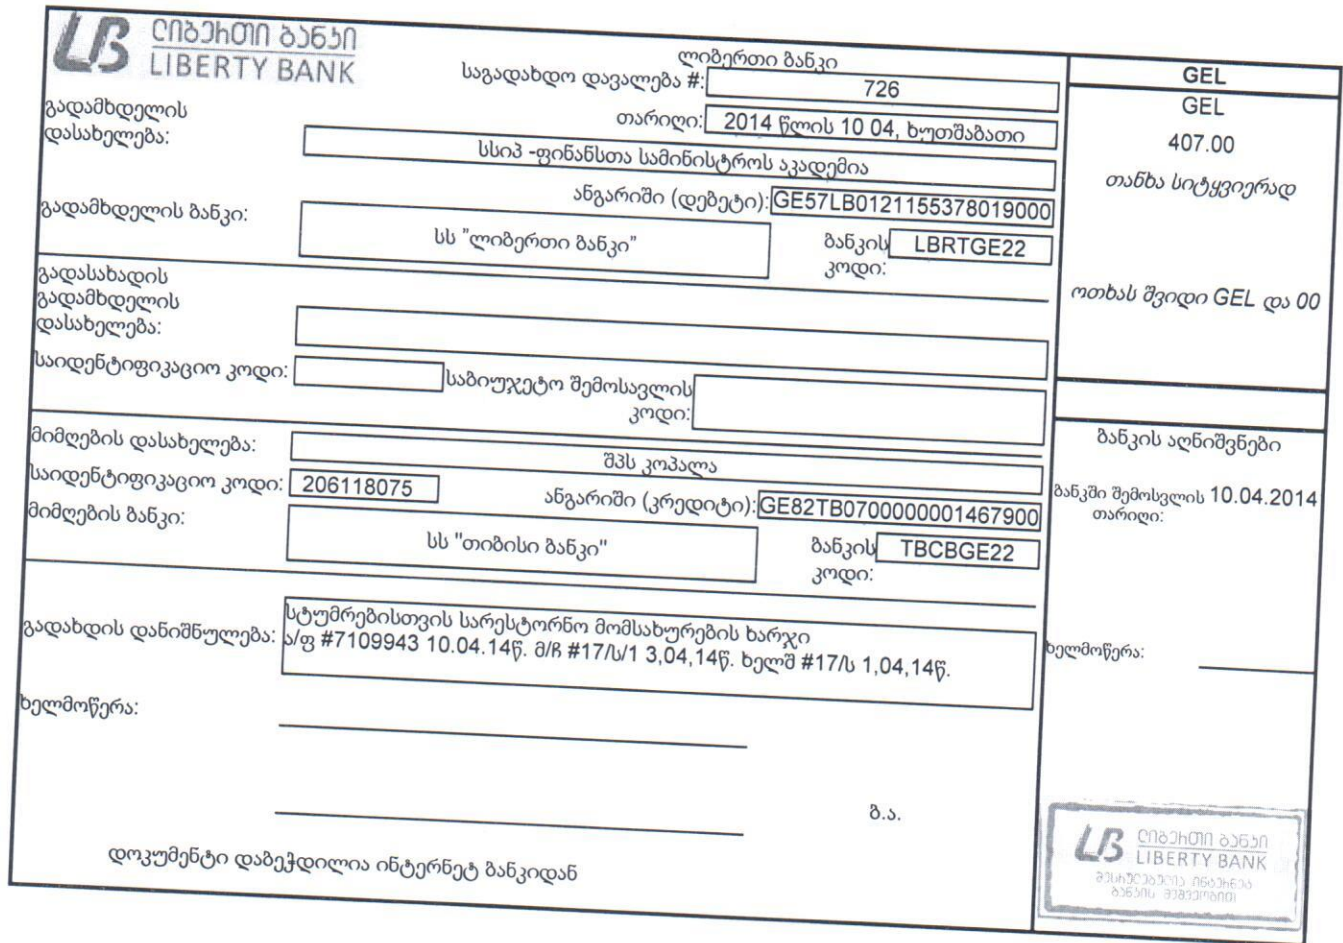 ლიბერთი ბანკი
LIBERTY BANK
ლიბერთი ბანკი
საგადახდო დავალება #: 726
თარიღი: 2014 წლის 10 04, ხუთშაბათი
გადამხდელის
დასახელება:
სსიპ -ფინანსთა სამინისტროს აკადემია
ანგარიში (დებეტი): GE57LB0121155378019000
გადამხდელის ბანკი:
სს "ლიბერთი ბანკი"
ბანკის LBRTGE22
კოდი:
გადასახადის
გადამხდელის
დასახელება:
საიდენტიფიკაციო კოდი:
საბიუჯეტო შემოსავლის
კოდი:
მიმღების დასახელება: შპს კოპალა
საიდენტიფიკაციო კოდი: 206118075
ანგარიში (კრედიტი): GE82TB0700000001467900
მიმღების ბანკი:
სს "თიბისი ბანკი"
ბანკის TBCBGE22
კოდი:
გადახდის დანიშნულება:
სტუმრებისთვის სარესტორნო მომსახურების ხარჯი
ა/ფ #7109943 10.04.14წ. მ/ჩ #17/ს/1 3,04,14წ. ხელშ #17/ს 1,04,14წ.
ხელმოწერა:
ბ.ა.
დოკუმენტი დაბეჭდილია ინტერნეტ ბანკიდან
GEL
GEL
407.00
თანხა სიტყვიერად
ოთხას შვიდი GEL და 00
ბანკის აღნიშვნები
ბანკში შემოსვლის 10.04.2014
თარიღი:
ხელმოწერა:
ლიბერთი ბანკი
LIBERTY BANK
შესრულებულია ინტერნეტ
ბანკის მეშვეობით